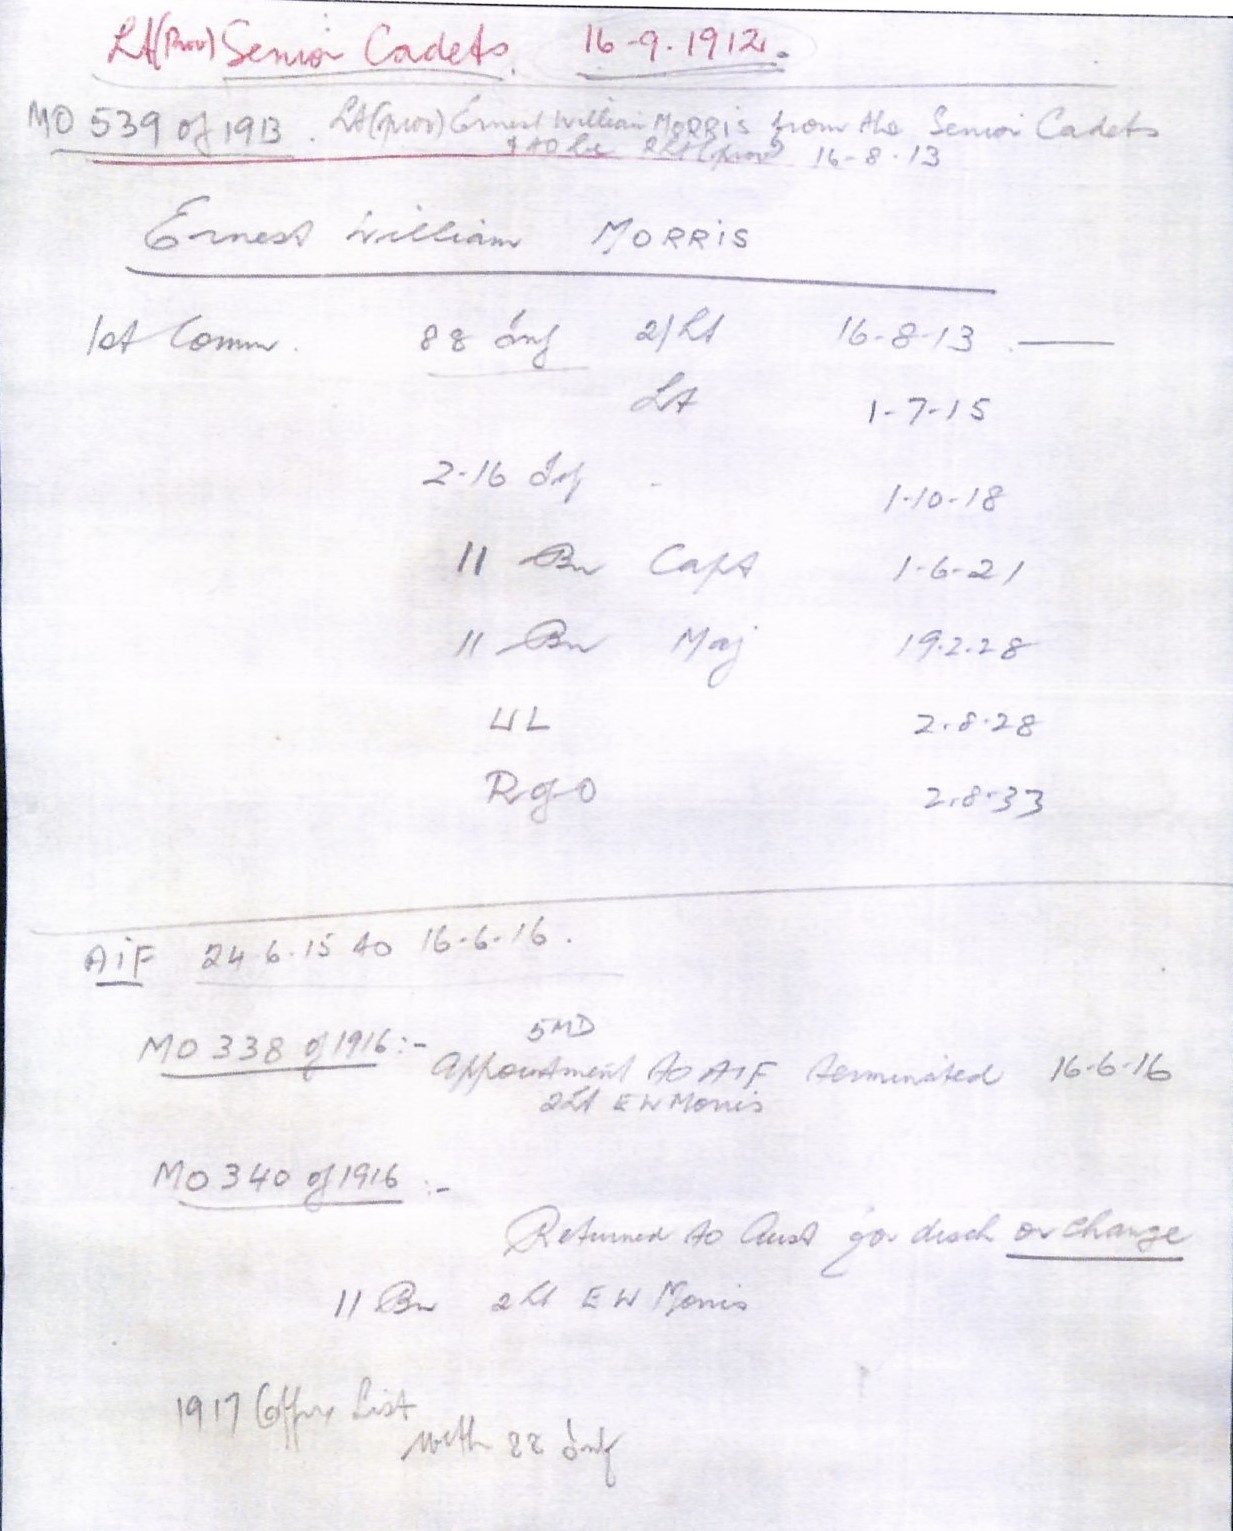 Lt(Prov) Senior Cadets. 16-9-1912.
MO 539 of 1913. Lt(prov) Ernest William MORRIS from the Senior Cadets
& to be 2Lt (prov) 16-8-13
Ernest William MORRIS
1st Comm. 88 Inf 2/Lt 16-8-13
Lt 1-7-15
2-16 Inf 1-10-18
11 Bn Capt 1-6-21
11 Bn Maj 19.2.28
UL 2.8.28
R of O 2.8.33
AIF 24.6.15 to 16-6-16.
5MD
MO 338 of 1916:- Appointment to AIF terminated 16-6-16
2Lt E W Morris
MO 340 of 1916:-
Returned to Aust for disch or change
11 Bn 2Lt E W Morris
1917 List
with 88 Inf